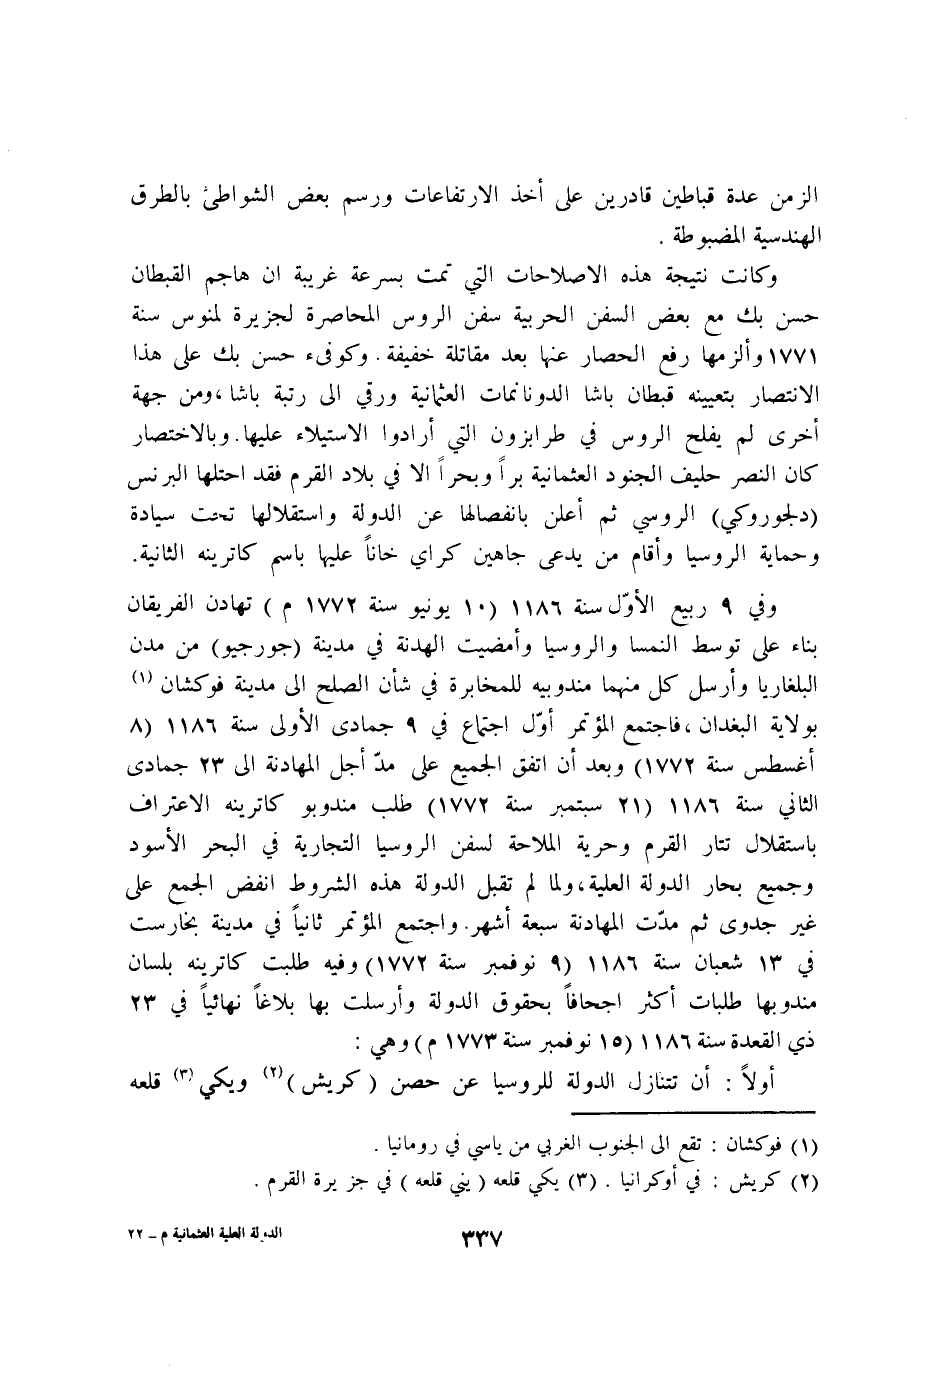 الزمن عدة قباطين قادرين على أخذ الارتفاعات ورسم بعض الشواطئ بالطرق
الهندسية المضبوطة .
وكانت نتيجة هذه الاصلاحات التي تمت بسرعة غريبة ان هاجم القبطان
حسن بك مع بعض السفن الحربية سفن الروس المحاصرة لجزيرة لمنوس سنة
١٧٧١ وألزمها رفع الحصار عنها بعد مقاتلة خفيفة . وكوفىء حسن بك على هذا
الانتصار بتعيينه قبطان باشا الدونانمات العثمانية ورقي الى رتبة باشا ، ومن جهة
أخرى لم يفلح الروس في طرابزون التي أرادوا الاستيلاء عليها . وبالاختصار
كان النصر حليف الجنود العثمانية براً وبحراً الا في بلاد القرم فقد احتلها البرنس
(دلجوروكي) الروسي ثم أعلن بانفصالها عن الدولة واستقلالها تحت سيادة
وحماية الروسيا وأقام من يدعى جاهين كراي خاناً عليها باسم كاترينه الثانية .
وفي ٩ ربيع الأوّل سنة ١١٨٦ (١٠ يونيو سنة ١٧٧٢ م ) تهادن الفريقان
بناء على توسط النمسا والروسيا وأمضيت الهدنة في مدينة (جورجيو) من مدن
البلغاريا وأرسل كل منهما مندوبيه للمخابرة في شأن الصلح الى مدينة فوكشان (١)
بولاية البغدان ، فاجتمع المؤتمر أوّل اجتماع في ٩ جمادى الأولى سنة ١١٨٦ (٨
أغسطس سنة ١٧٧٢) وبعد أن اتفق الجميع على مدّ أجل المهادنة الى ٢٣ جمادى
الثاني سنة ١١٨٦ (٢١ سبتمبر سنة ١٧٧٢) طلب مندوبو كاترينه الاعتراف
باستقلال تتار القرم وحرية الملاحة لسفن الروسيا التجارية في البحر الأسود
وجميع بحار الدولة العلية ، ولما لم تقبل الدولة هذه الشروط انفض الجمع على
غير جدوى ثم مدّت المهادنة سبعة أشهر . واجتمع المؤتمر ثانياً في مدينة بخارست
في ١٣ شعبان سنة ١١٨٦ (٩ نوفمبر سنة ١٧٧٢) وفيه طلبت كاترينه بلسان
مندوبها طلبات أكثر اجحافاً بحقوق الدولة وأرسلت بها بلاغاً نهائياً في ٢٣
ذي القعدة سنة ١١٨٦ (١٥ نوفمبر سنة ١٧٧٣ م ) وهي :
أولاً : أن تتنازل الدولة للروسيا عن حصن ( كريش ) (٢) ويكي (٣) قلعه
(١) فوكشان : تقع الى الجنوب الغربي من ياسي في رومانيا .
(٢) كريش : في أوكرانيا . (٣) يكي قلعه ( يني قلعه ) في جزيرة القرم .
٣٣٧
الدولة العلية العثمانية م - ٢٢